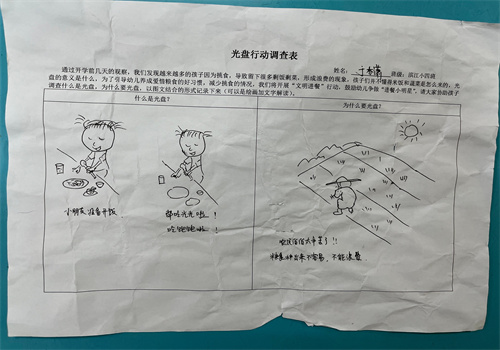 光盘行动调查表
姓名： 班级：滨江小四班
通过开学前几天的观察，我们发现越来越多的孩子因为挑食，导致留下很多剩饭剩菜，形成浪费的现象，孩子们并不懂得米饭和蔬菜是怎么来的，光
盘的意义是什么，为了引导幼儿养成爱惜粮食的好习惯，减少挑食的情况，我们将开展“文明进餐”行动，鼓励幼儿争做“进餐小明星”，请大家协助孩子
调查什么是光盘，为什么要光盘，以图文结合的形式记录下来（可以是绘画加文字解读）。
什么是光盘？
为什么要光盘？
小朋友准备干饭
都吃光光啦！
吃饱饱啦！
农民伯伯太辛苦了!!
种出来不容易，不能浪费